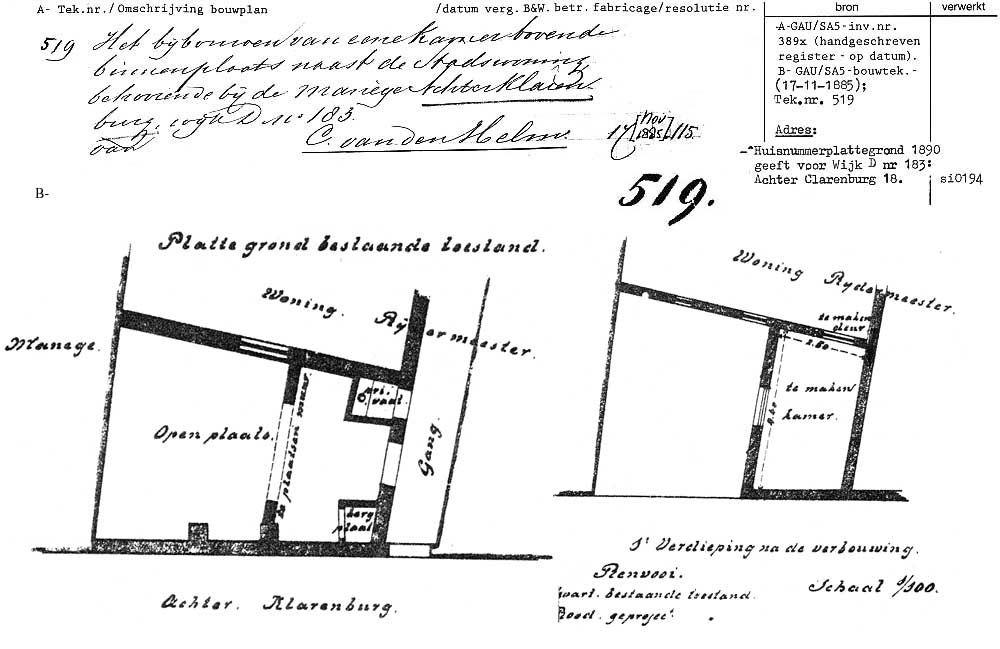 A- Tek.nr./Omschrijving bouwplan /datum verg. B&W. betr. fabricage/resolutie nr. bron verwerkt
519 Het bijbouwen van eene Kamer boven de
binnenplaats naast de Stadswoning
behoorende bij de manége Achter Klaren
burg, wijk D no 183.
van C. van den Helm. 17 [Nov 1885] 115
-A-GAU/SA5-inv.nr.
389x (handgeschreven
register - op datum).
B- GAU/SA5-bouwtek.-
(17-11-1885);
Tek.nr. 519
Adres:
-*Huisnummerplattegrond 1890
geeft voor Wijk D nr 183:
Achter Clarenburg 18. si0194
B-
519.
Platte grond bestaande toestand.
Woning Rijdermeester.
Manege.
Open plaats.
te plaatsen muur
pri.
vaat.
Gang.
berg
plaats
Achter. Klarenburg.
Woning Rydermeester.
te maken
deur.
2.80
te maken
kamer.
1e Verdieping na de verbouwing.
Renvooi.
Zwart. bestaande toestand.
Rood. geproject.
Schaal 1/100.